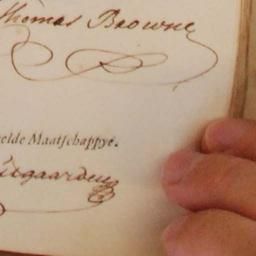 Thomas Browne
elde Maatſchappye.
itgaarden